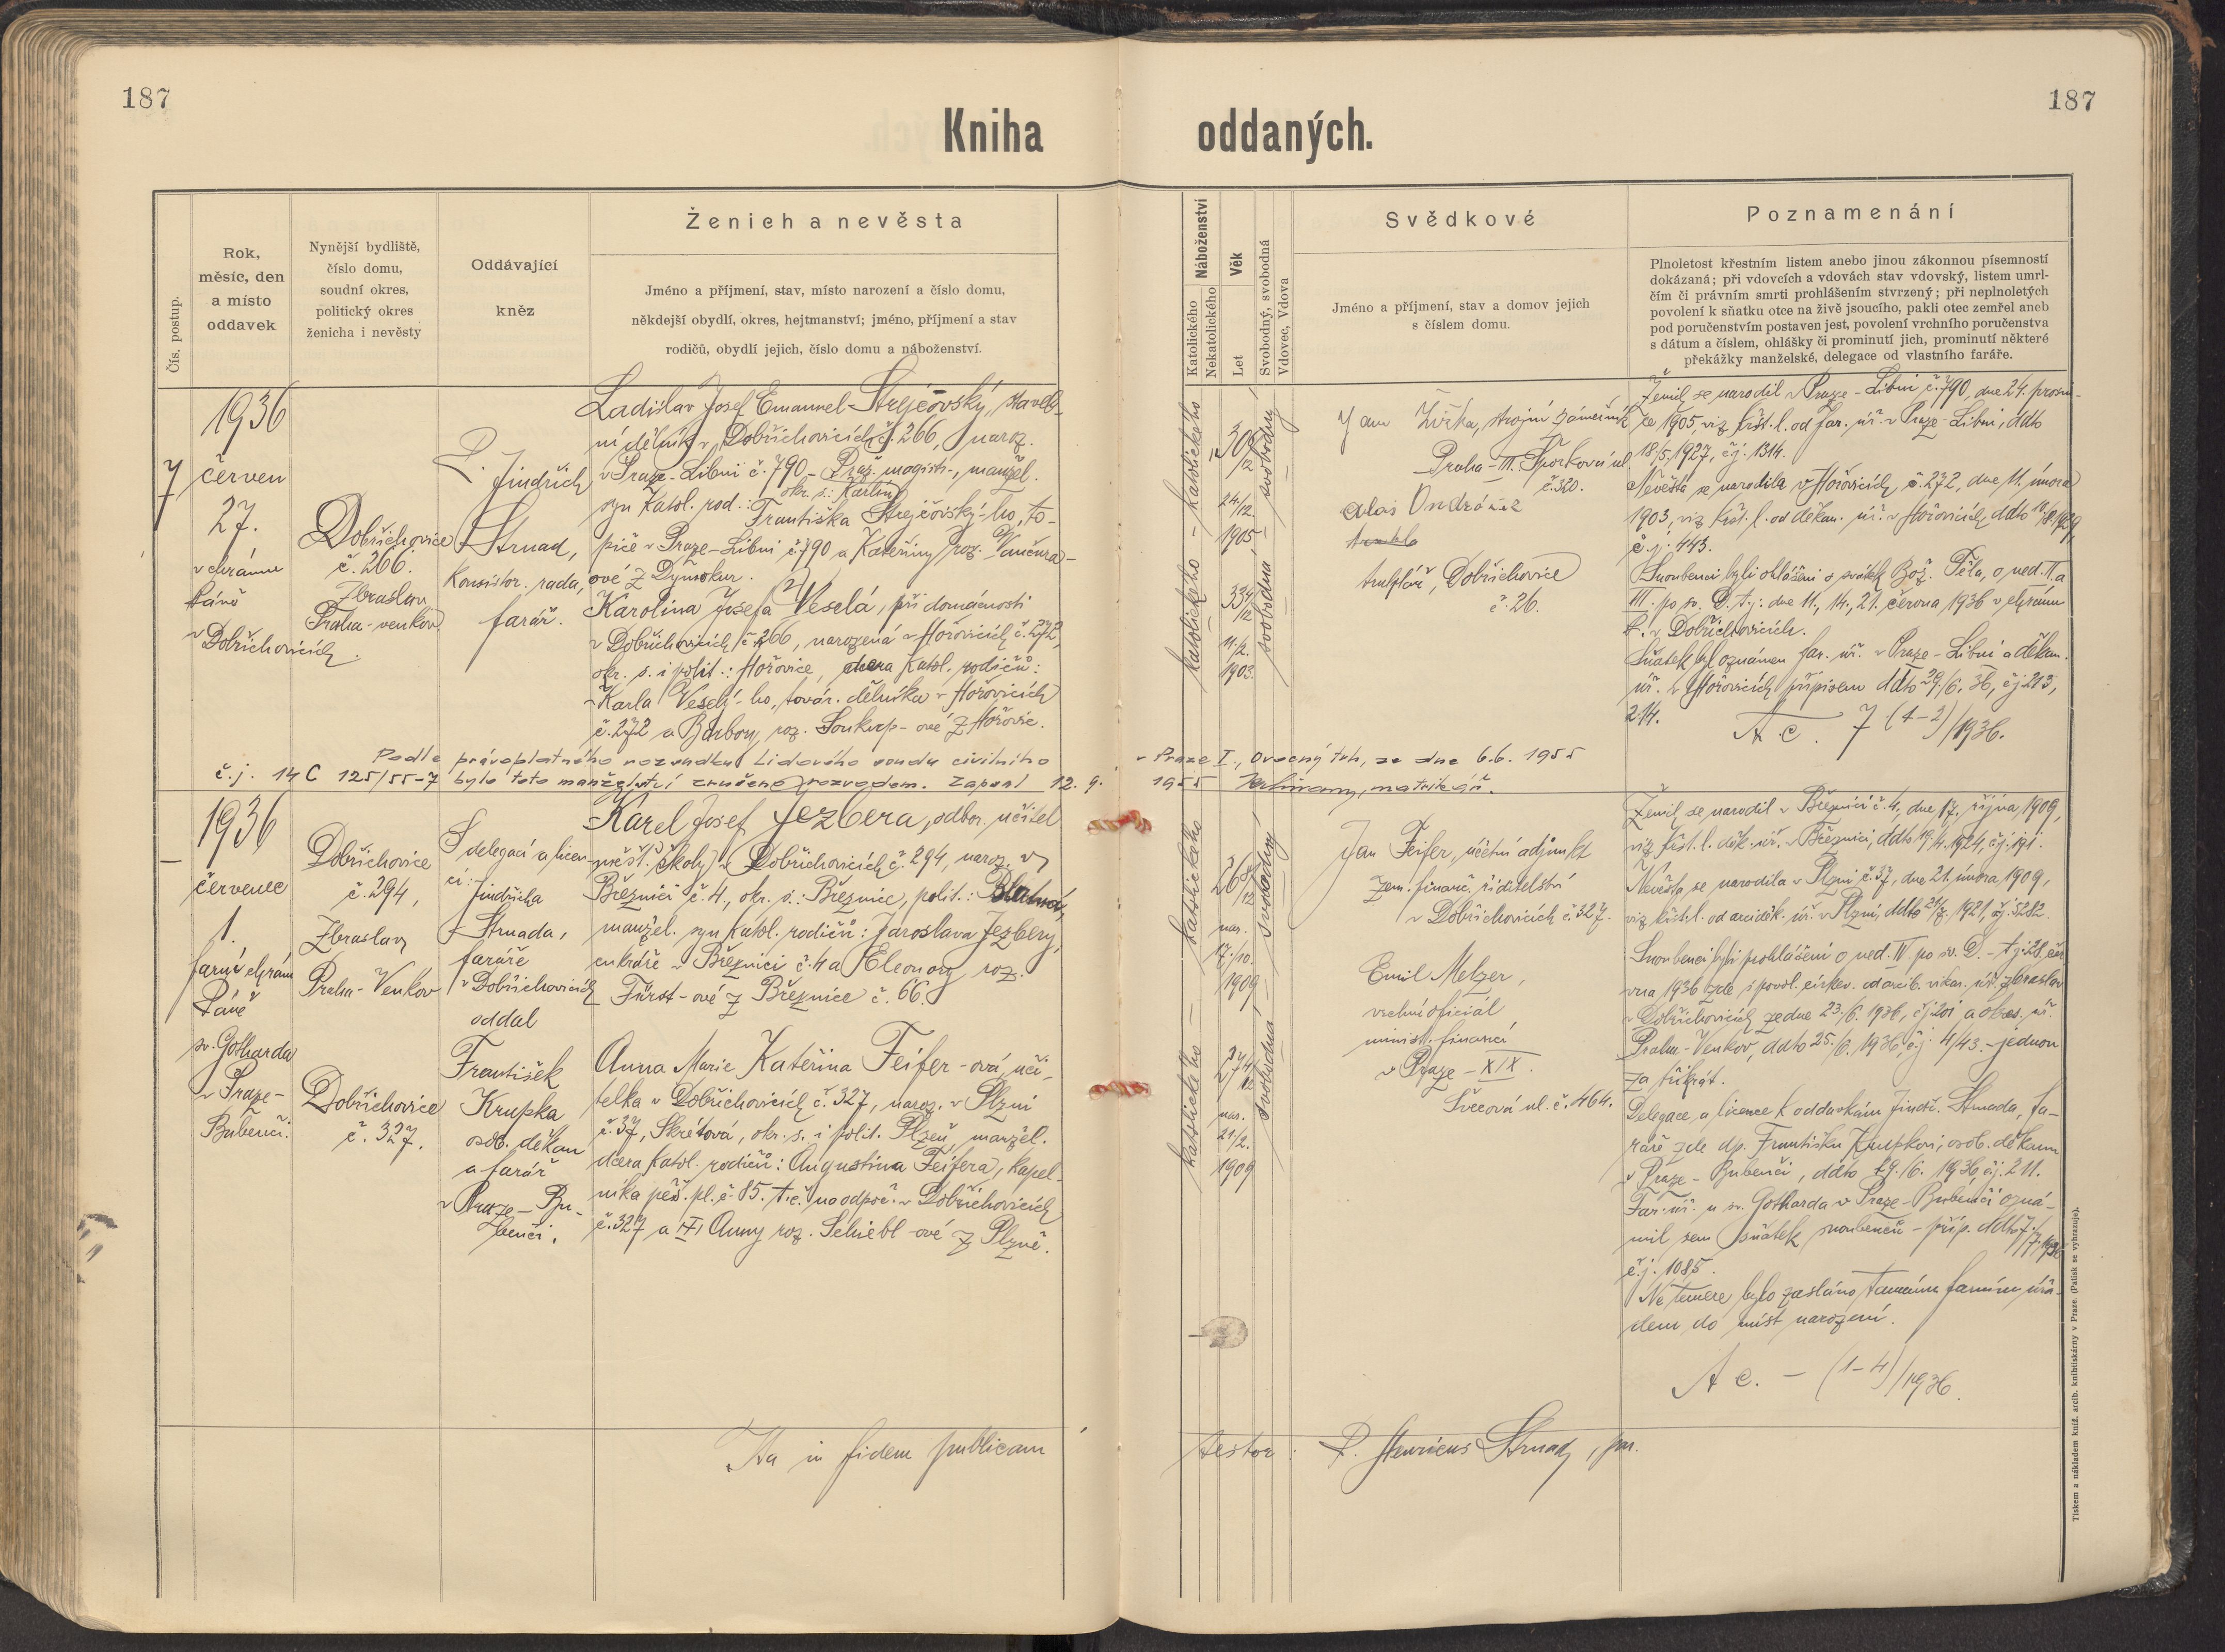 187
187
Kniha oddaných.
Čís. postup.
Rok,
měsíc, den
a místo
oddavek
Nynější bydliště,
číslo domu,
soudní okres,
politický okres
ženicha i nevěsty
Oddávající
kněz
Ženich a nevěsta
Jméno a příjmení, stav, místo narození a číslo domu,
někdejší obydlí, okres, hejtmanství; jméno, příjmení a stav
rodičů, obydlí jejich, číslo domu a náboženství.
Náboženství
Katolického
Nekatolického
Věk
Let
Svobodný, svobodná
Vdovec, Vdova
Svědkové
Jméno a příjmení, stav a domov jejich
s číslem domu.
Poznamenání
Plnoletost křestním listem anebo jinou zákonnou písemností
dokázaná; při vdovcích a vdovách stav vdovský, listem umrl-
čím či právním smrti prohlášením stvrzený; při neplnoletých
povolení k sňatku otce na živě jsoucího, pakli otec zemřel aneb
pod poručenstvím postaven jest, povolení vrchního poručenstva
s dátum a číslem, ohlášky či prominutí jich, prominutí některé
překážky manželské, delegace od vlastního faráře.
7
1936
červen
27.
v chrámu
Páně
v Dobřichovicích.
Dobřichovice
č. 266.
Zbraslav
Praha-venkov
P.
Jindřich
Strnad,
konsistor. rada,
farář.
Ladislav Josef Emanuel Strejčovský, staveb-
ní dělník v Dobřichovicích č. 266, naroz.
v Praze-Libni č. 790 - Praž. magistr., manžel.
okr. s.: Karlín
syn katol. rod.: Františka Strejčovský-ho, to-
piče v Praze-Libni č. 790 a Kateřiny roz. Vančura-
ové z Dymokur.
Karolina Josefa Veselá, při domácnosti
v Dobřichovicích č. 266, narozená v Hořovicích č. 272,
okr. s. i polit.: Hořovice, dcera katol. rodičů:
Karla Veselý-ho, továr. dělníka v Hořovicích
č. 272 a Barbory roz. Soukup-ové z Hořovic.
katolického - katolického
30 6/12
24./12.
1905
33 4/12
11./2.
1903.
svobodný
svobodná
Jan Zvířka, strojní zámečník
Praha-III. Šporkova ul.
č. 320.
Alois Ondráček
truhlář, Dobřichovice
č. 26.
Ženich se narodil v Praze-Libni č. 790, dne 24. prosin-
ce 1905, viz křst. l. od far. úř. v Praze-Libni, ddto
18./5. 1927, č.j. 1314.
Nevěsta se narodila v Hořovicích č. 272, dne 11. února
1903, viz křst. l. od děkan. úř. v Hořovicích, ddto
č.j. 443.
Snoubenci byli ohlášeni o svátek Bož. Těla, o ned. II. a
III. po sv. D. t.j.: dne 11., 14., 21. června 1936 v chrámu
P. v Dobřichovicích.
Sňatek byl oznámen far. úř. v Praze-Libni a děkan.
úř. v Hořovicích přípisem ddto 29./6. 36, č.j. 213,
214.
A.c. 7 (1-2)/1936.
Podle právoplatného rozsudku Lidového soudu civilního v Praze I., Ovocný trh, ze dne 6.6. 1955
č.j. 14 C 125/55-7 bylo toto manželství zrušeno rozvodem. Zapsal 12. 9. 1955 matrikář.
1936
červenec
1.
farní chrám
Páně
sv. Gotharda
v Praze-
Bubenči.
Dobřichovice
č. 294,
Zbraslav
Praha-Venkov
Dobřichovice
č. 327.
S delegací a licen-
cí:
Jindřicha
Strnada,
faráře
v Dobřichovicích
oddal
František
Krupka
osob. děkan
a farář
v Praze-Bu-
benči.
Karel Josef Jezbera, odbor. učitel
měšť. školy v Dobřichovicích č. 294, naroz. v
Březnici č. 4., okr. s.: Březnice, polit.: Blatná,
manžel. syn katol. rodičů: Jaroslava Jezbery,
cukráře v Březnici č. 4 a Eleonory roz.
Fürst-ové z Březnice č. 66.
Anna Marie Kateřina Feifer-ová, uči-
telka v Dobřichovicích č. 327, naroz. v Plzni
č. 37, Skrétová, okr. s. i polit. Plzeň, manžel.
dcera katol. rodičů: Augustina Feifera, kapel-
níka pěš. pl. č. 85. t.č. na odpoč. v Dobřichovicích
č. 327 a Anny roz. Schiebl-ové z Plzně.
katolického - katolického
26 8/12
nar.
17./10.
1909
27 4/12
nar.
21/2.
1909
svobodný
svobodná
Jan Feifer, účetní adjunkt
zem. finanč. ředitelství
v Dobřichovicích č. 327.
Emil Melzer,
vrchní oficiál
minist. financí
v Praze-XIX.
Švecová ul. č. 464.
Ženich se narodil v Březnici č. 4, dne 17. října 1909,
viz křst. l. děk. úř. v Březnici, ddto 19./4. 1924, č.j. 191.
Nevěsta se narodila v Plzni č. 37, dne 21. února 1909,
viz křst. l. od arciděk. úř. v Plzni, ddto 1921, č.j. 5282.
Snoubenci byli prohlášeni o ned. IV po sv. D. - t.j. 28. čer-
vna 1936 zde s povol. církev. od arcib. vikar. úř. zbraslav.
v Dobřichovicích ze dne 23./6. 1936, č.j. 201 a okres. úř.
Praha-Venkov, ddto 25./6. 1936, č.j. 4/43. - jednou
za třikrát.
Delegace a licence k oddavkám Jindř. Strnada, fa-
ráře zde dp. Františku Krupkovi, osob. děkanu
v Praze-Bubenči, ddto 29./6. 1936 č.j. 211.
Far. úř. u sv. Gotharda v Praze-Bubenči ozná-
mil sem sňatek snoubenců - příp. ddto 7./7. 1936
č.j. 1085.
Ne temere bylo zasláno tamním farním úřa-
dem do míst narození.
A c. - (1-4)/1936.
Ita in fidem publicam testor: P. Henricus Strnad, par.
Tiskem a nákladem kníž. arcib. knihtiskárny v Praze. (Patisk se vyhrazuje).